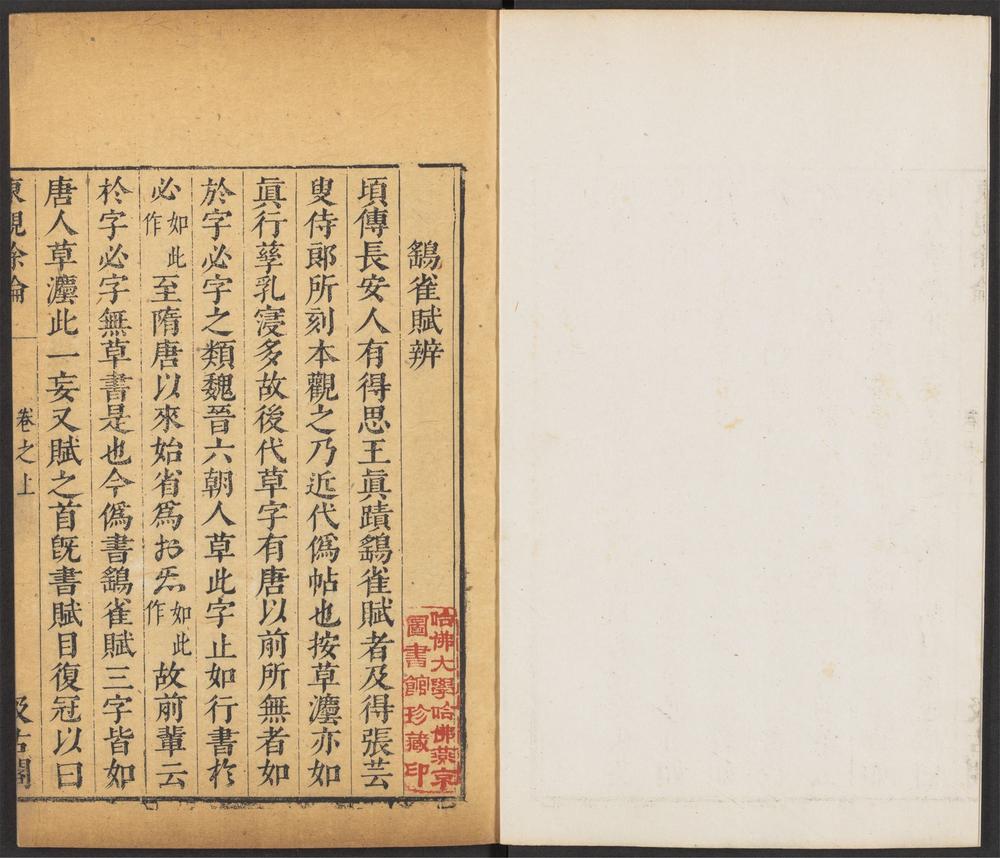 鷂雀賦辨
頃傳長安人有得思王眞蹟鷂雀賦者及得張芸
叟侍郎所刻本觀之乃近代僞帖也按草灋亦如
眞行孳乳寖多故後代草字有唐以前所無者如
於字必字之類魏晉六朝人草此字止如行書於
必作如此至隋唐以來始省爲作如此故前輩云
於字必字無草書是也今僞書鷂雀賦三字皆如
唐人草灋此一妄又賦之首旣書賦目復冠以曰
東觀餘論
卷之上
汲古閣
哈佛大學哈佛燕京
圖書館珍藏印